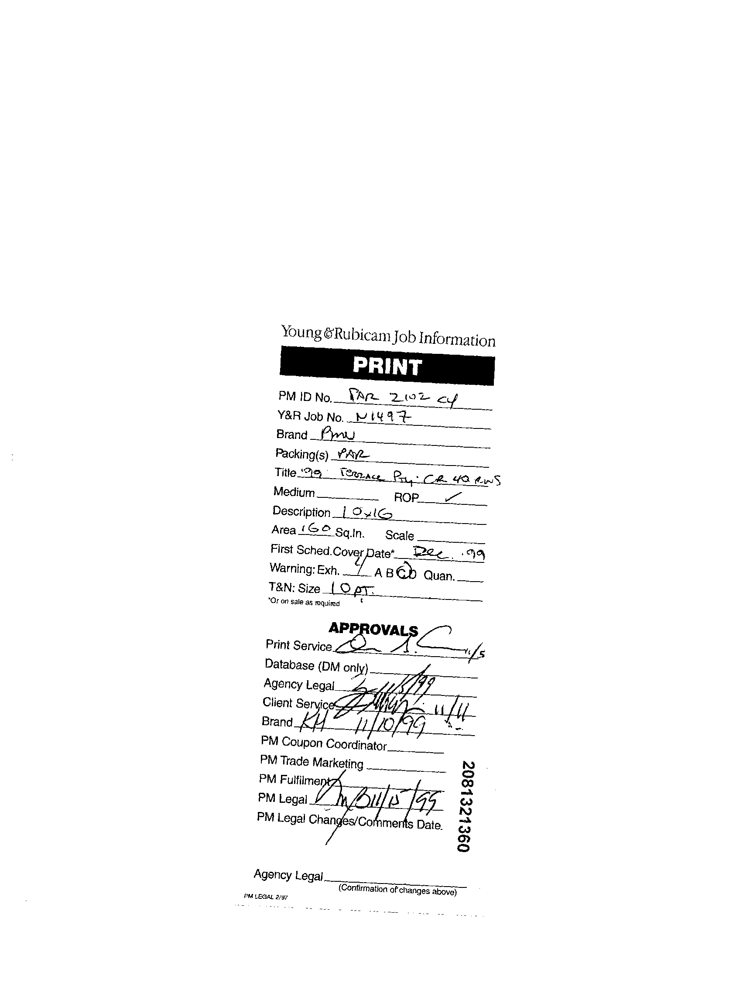 Young & Rubicam Job Information
PRINT
PM ID No. PAR 2102 C4
Y&R Job No. N1497
Brand PMU
Packing(s) PAR
Title '99 Terrace Pty: CR 4Q RWS
Medium ROP ✓
Description 10x16
Area 160 Sq.In. Scale
First Sched. Cover Date* Dec. '99
Warning: Exh. A B C D Quan.
T&N: Size 10 PT.
*Or on sale as required
APPROVALS
Print Service 11/5
Database (DM only)
Agency Legal 11/5/99
Client Service 11/11
Brand KH 11/10/99
PM Coupon Coordinator
PM Trade Marketing
PM Fulfilment
PM Legal 11/15/99
PM Legal Changes/Comments Date.
2081321360
Agency Legal
(Confirmation of changes above)
PM LEGAL 2/97